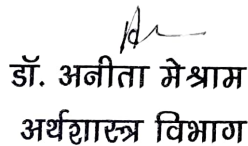 डॉ. अनीता मेश्राम
अर्थशास्त्र विभाग